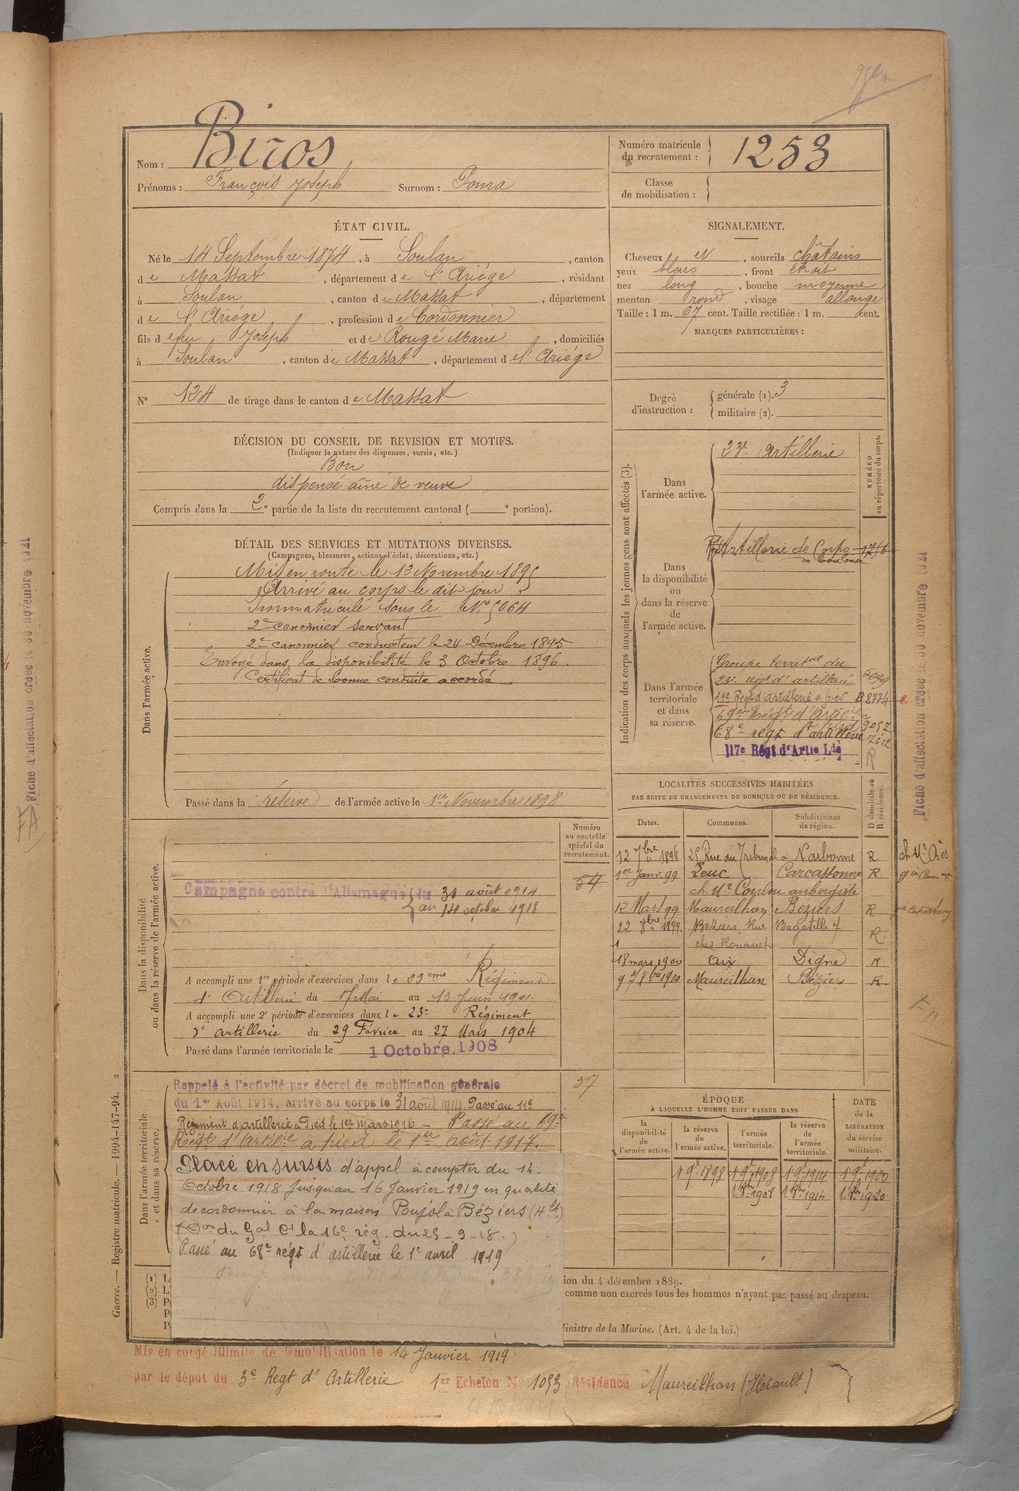 Nom : Biros
Prénoms : François Joseph Surnom : Poura
Numéro matricule du recrutement : 1253
Classe de mobilisation :
ÉTAT CIVIL.
Né le 14 Septembre 1874, à Soulan, canton
de Massat, département de l'Ariége, résidant
à Soulan, canton de Massat, département
de l'Ariége, profession de Cordonnier
fils de feu Joseph et de Rougé Marie, domiciliés
à Soulan, canton de Massat, département de l'Ariége
N° 134 de tirage dans le canton de Massat
SIGNALEMENT.
Cheveux et, sourcils châtains
yeux bleus, front étroit
nez long, bouche moyenne
menton rond, visage allongé
Taille : 1 m. 67 cent. Taille rectifiée : 1 m. cent.
MARQUES PARTICULIÈRES :
Degré d'instruction : générale (1). 3
militaire (2).
DÉCISION DU CONSEIL DE RÉVISION ET MOTIFS.
(Indiquer la nature des dispenses, sursis, etc.)
Bon
dispensé aîné de veuve
Compris dans la 2e partie de la liste du recrutement cantonal ( e portion).
DÉTAIL DES SERVICES ET MUTATIONS DIVERSES.
(Campagnes, blessures, actions d'éclat, décorations, etc.)
Dans l'armée active.
Mis en route le 13 Novembre 1895
Arrivé au corps le dit jour
Immatriculé sous le N° 5064
2e canonnier servant
2e canonnier conducteur le 24 Décembre 1895
Envoyé dans la disponibilité le 3 Octobre 1896.
Certificat de bonne conduite accordé
Passé dans la réserve de l'armée active le 1er Novembre 1898
Indication des corps auxquels les jeunes gens sont affectés (3).
NUMÉRO au répertoire du corps.
Dans l'armée active. 23e Artillerie
Dans la disponibilité ou dans la réserve de l'armée active.
Artillerie de Corps
Dans l'armée territoriale et dans sa réserve.
Groupe territal du
23e régt d'artillerie
11e Régt d'artillerie à pied 8574
68e régt d'artillerie
117e Régt d'Artie Lde
Dans la disponibilité ou dans la réserve de l'armée active.
Numéro au contrôle spécial du recrutement.
54
Campagne contre l'Allemagne du 31 août 1914
au 14 octobre 1918
A accompli une 1re période d'exercices dans le 23eme Régiment
d'Artillerie du 17 Mai au 13 Juin 1901.
A accompli une 2e période d'exercices dans le 23e Régiment
d'artillerie du 29 Février au 27 Mars 1904
Passé dans l'armée territoriale le 1 Octobre 1908
LOCALITÉS SUCCESSIVES HABITÉES
PAR SUITE DE CHANGEMENTS DE DOMICILE OU DE RÉSIDENCE.
Dates. Communes. Subdivisions de région. D domicile ou R résidence.
12 7bre 1896 25 Rue du Tribunal à Narbonne R
1er Janv. 99 Leuc Carcassonne R
ch. Mr Coulou aubergiste
12 Mars 99 Maureilhan Béziers R
22 8bre 1899 Béziers, Rue Bagatelle 7 R
chez Rouanet
18 mars 1900 Aix Digne R
9 8bre 1900 Maureilhan Béziers R
Dans l'armée territoriale et dans sa réserve.
37
Rappelé à l'activité par décret de mobilisation générale
du 1er Août 1914, arrivé au corps le 31 août 1914. Passé au 11e
Régiment d'artillerie à Pied le 1er mars 1916 - Passé au
Régt d'Artillerie à pied le 1er août 1917.
Placé en sursis d'appel à compter du 14
Octobre 1918 jusqu'au 16 Janvier 1919 en qualité
de cordonnier à la maison Pujol à Béziers (Hlt)
(Don du Gal Ct la 16e rég. du 25-9-18.)
Passé au 68e régt d'artillerie le 1er avril 1919
ÉPOQUE
À LAQUELLE L'HOMME DOIT PASSER DANS
la disponibilité de l'armée active. la réserve de l'armée active. l'armée territoriale. la réserve de l'armée territoriale.
DATE de la LIBÉRATION du service militaire.
1 9bre 1898 1 9bre 1908 1 9bre 1914 1 9bre 1920
1 8bre 1908 1 8bre 1914 1 8bre 1920
(1)
(2)
(3)
ion du 4 décembre 1889.
comme non exercés tous les hommes n'ayant pas passé au drapeau.
Ministre de la Marine. (Art. 4 de la loi.)
Mis en congé illimité de démobilisation le 14 Janvier 1919
par le dépôt du 3e Régt d'Artillerie 1er Echelon N° 1053 Résidence Maureilhan (Hérault)
Guerre. — Registre matricule. — 1094-147-94. 2